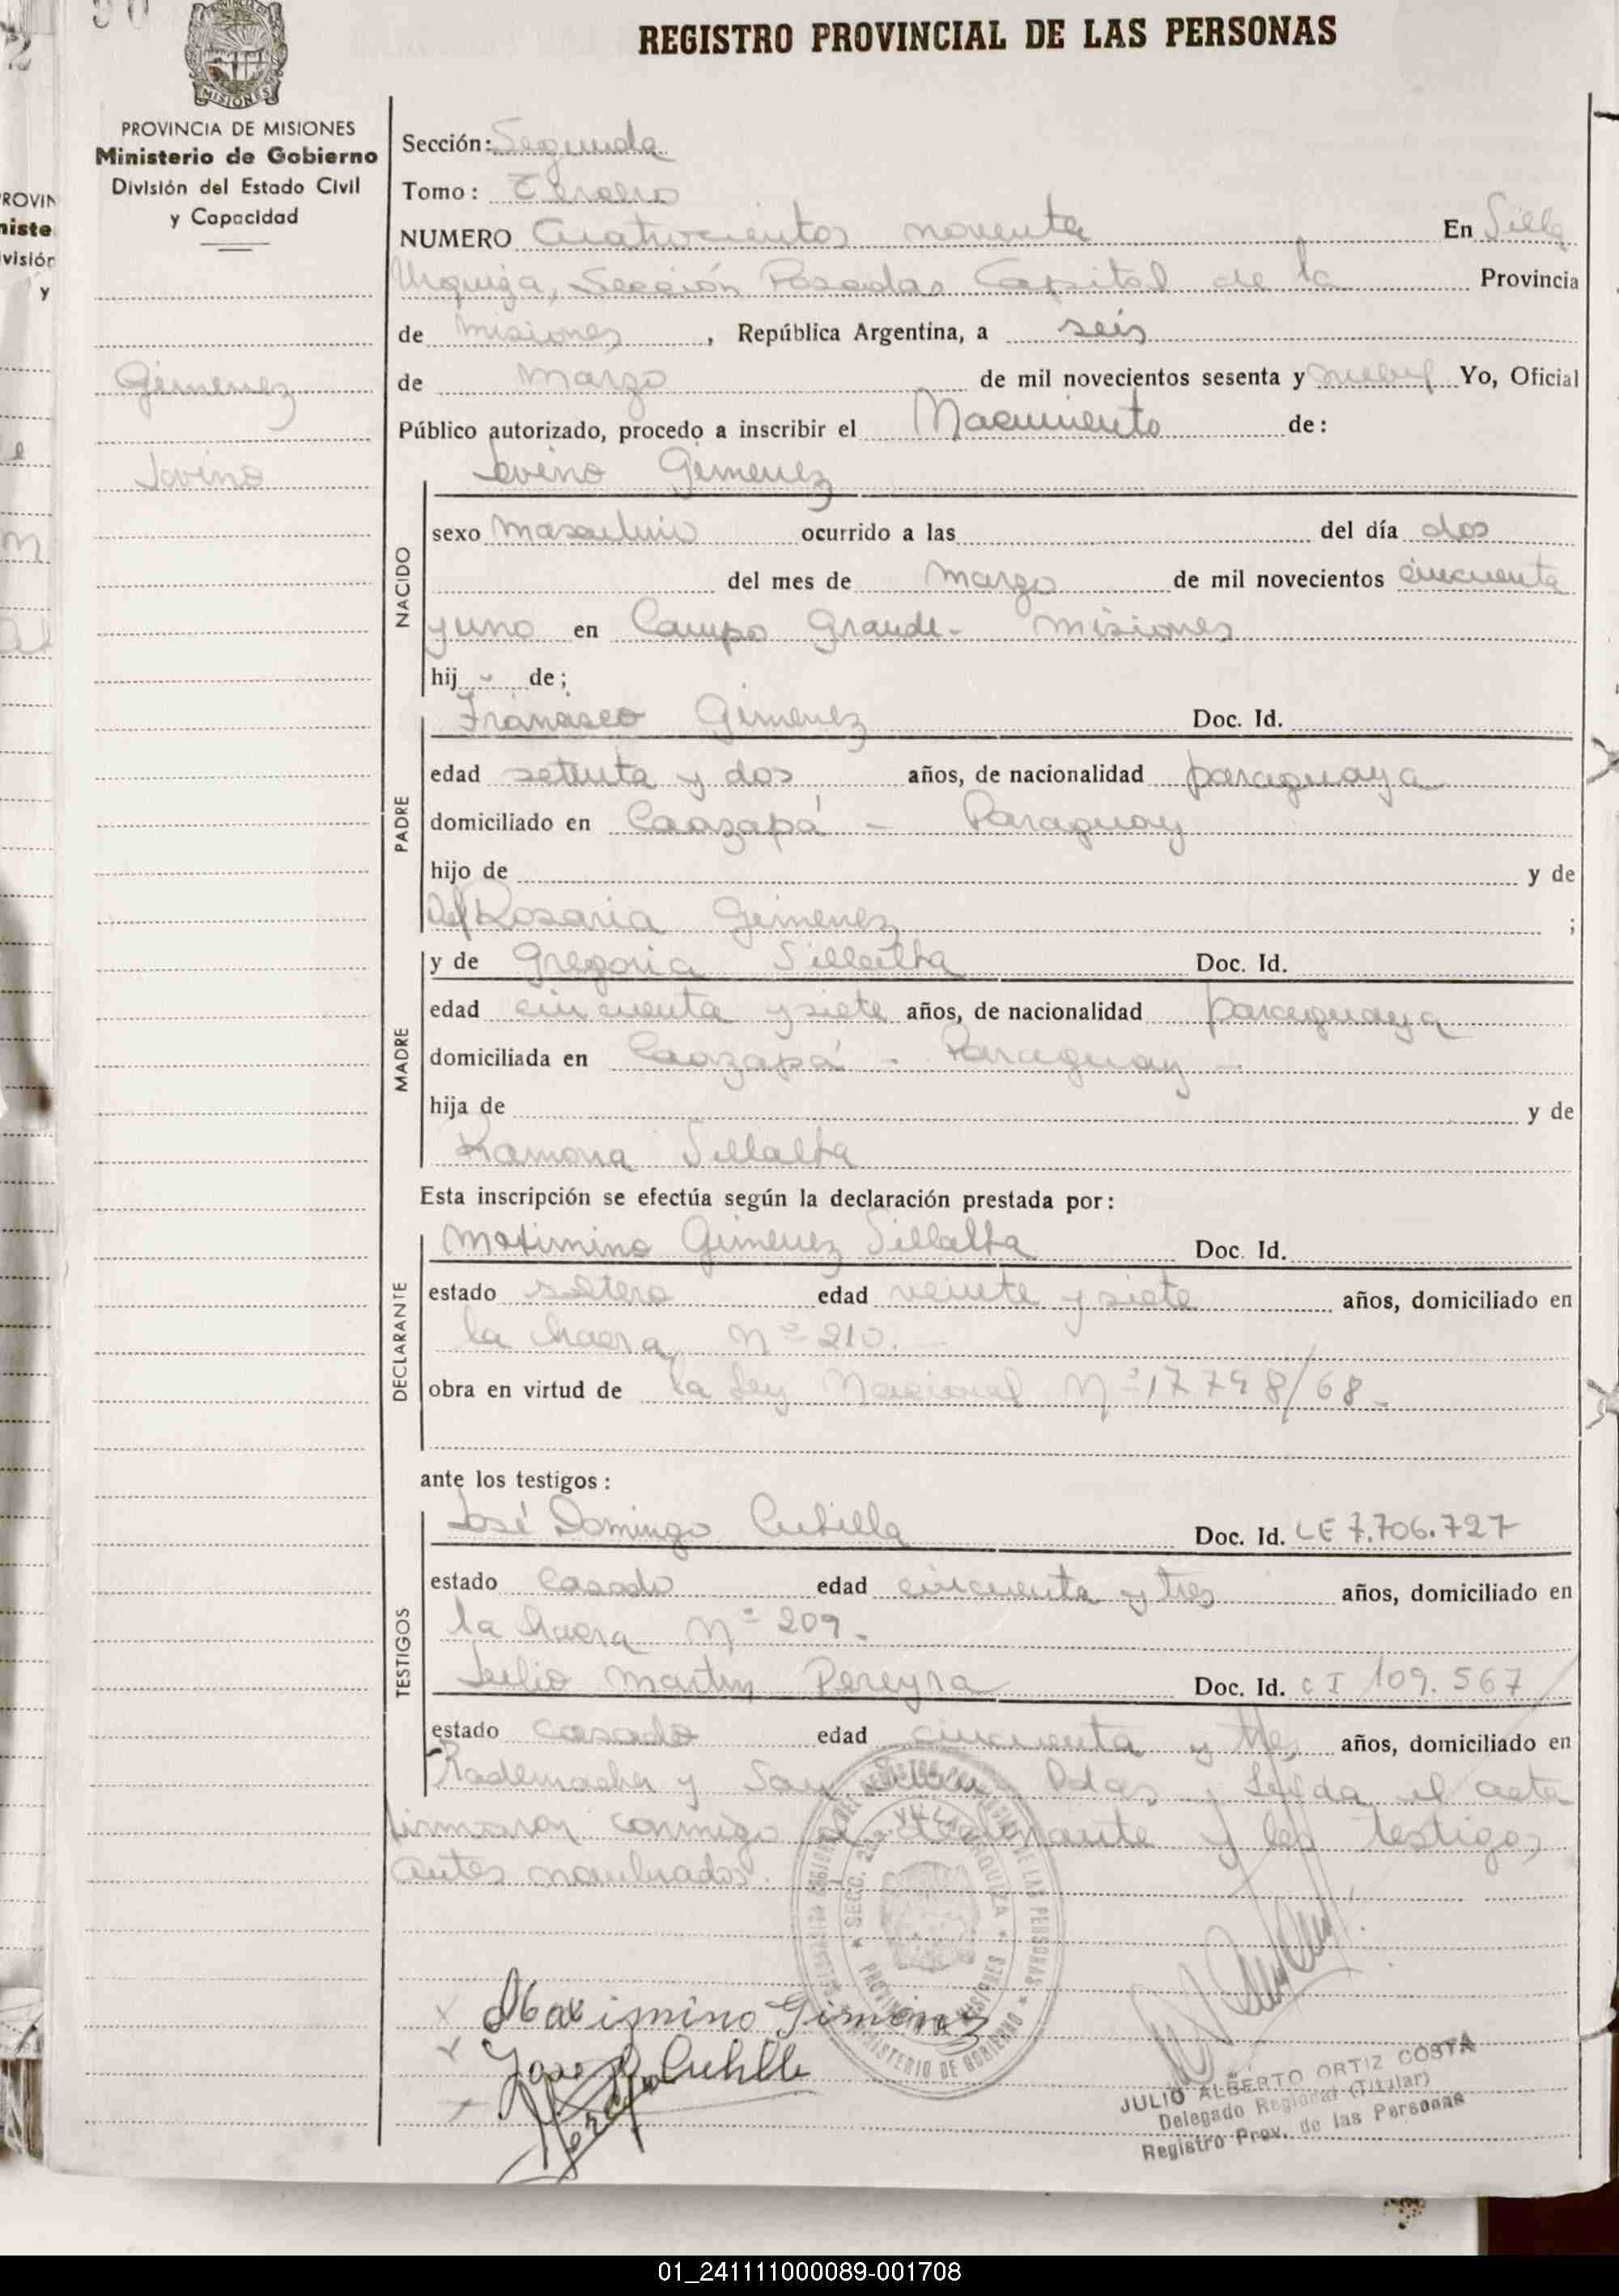 REGISTRO PROVINCIAL DE LAS PERSONAS
MISIONES
PROVINCIA DE MISIONES
Ministerio de Gobierno
División del Estado Civil
y Capacidad
Gimenez
Jovino
Sección: Segunda
Tomo: Tercero
NUMERO Cuatrocientos noventa En Villa
Urquiza, Sección Posadas Capital de la Provincia
de Misiones, República Argentina, a seis
de marzo de mil novecientos sesenta y nueve Yo, Oficial
Público autorizado, procedo a inscribir el Nacimiento de:
Jovino Gimenez
NACIDO
sexo masculino ocurrido a las del día dos
del mes de marzo de mil novecientos cincuenta
y uno en Campo Grande - Misiones
hij de;
PADRE
Francisco Gimenez Doc. Id.
edad setenta y dos años, de nacionalidad paraguaya
domiciliado en Caazapá - Paraguay
hijo de y de
Del Rosaria Gimenez ;
MADRE
y de Gregoria Villalba Doc. Id.
edad cincuenta y siete años, de nacionalidad paraguaya
domiciliada en Caazapá - Paraguay -
hija de y de
Ramona Villalba
Esta inscripción se efectúa según la declaración prestada por:
DECLARANTE
Maximino Gimenez Villalba Doc. Id.
estado soltero edad veinte y siete años, domiciliado en
la chacra Nº 210. -
obra en virtud de la Ley Nacional Nº 17798/68 -
ante los testigos:
TESTIGOS
José Domingo Cubilla Doc. Id. LE 7.706.727
estado casado edad cincuenta y tres años, domiciliado en
la chacra Nº 209 -
Julio Martin Pereyra Doc. Id. C I 109.567
estado casado edad cincuenta y tres años, domiciliado en
Rademacher y San Pdas, Leída el acta
firmaron conmigo el declarante y los testigos
antes nombrados.
SECC. 2da. VILLA URQUIZA
PROVINCIA DE MISIONES
MINISTERIO DE GOBIERNO
Maximino Gimenez
Jose D Cubilla
JULIO ALBERTO ORTIZ COSTA
Delegado Regional (Titular)
Registro Prov. de las Personas
01_241111000089-001708